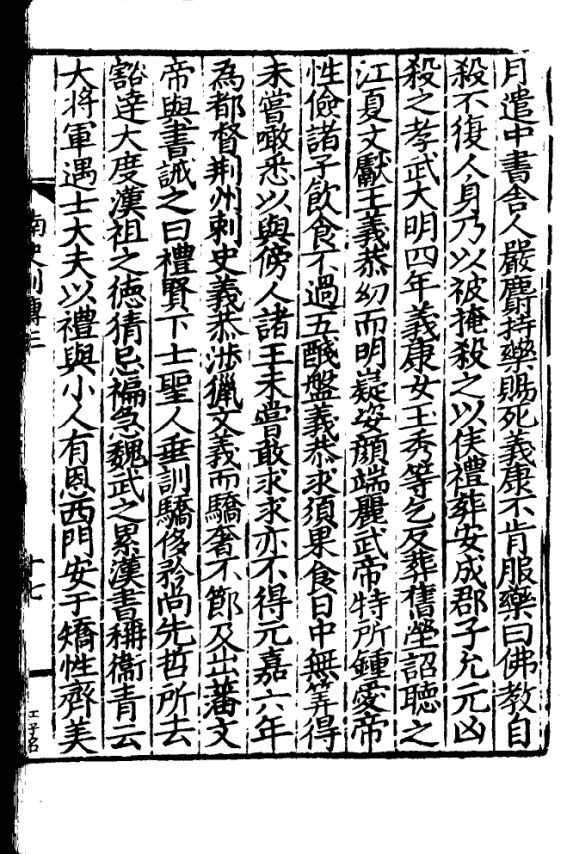 月遣中書舍人嚴麝持藥賜死義康不肯服藥曰佛教自
殺不復人身乃以被掩殺之以侯禮葬安成郡子允元凶
殺之孝武大明四年義康女玉秀等乞反葬舊塋詔聽之
江夏文獻王義恭幼而明嶷姿顔端麗武帝特所鍾愛帝
性儉諸子飲食不過五醆盤義恭求須果食日中無筭得
未嘗噉悉以與傍人諸王未嘗敢求求亦不得元嘉六年
為都督荆州刺史義恭涉獵文義而驕奢不節及出蕃文
帝與書誡之曰禮賢下士聖人垂訓驕侈矜尚先哲所去
豁逹大度漢祖之徳猜忌褊急魏武之累漢書稱衞青云
大將軍遇士大夫以禮與小人有恩西門安于矯性齊美
南史列傳三
十七